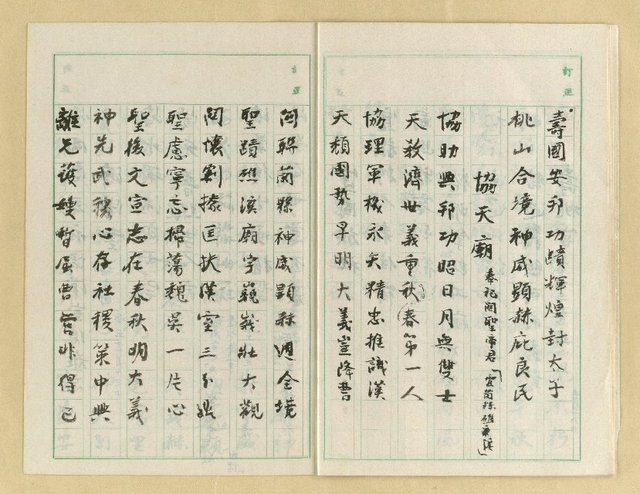 訂正
壽國安邦功蹟輝煌封太子
桃山合境神威顯赫庇良民
協天廟 奉祀関聖帝君
協助興邦功昭日月無雙士
天教濟世義重秋春第一人
協理軍機永矢精忠推識漢
天頹國勢早明大義豈降曹
関聯蘭縣神威顯赫週全境
聖蹟礁溪廟宇巍峩壯大觀
関懷割據匡扶漢室三分
聖慮寧忘掃蕩魏吳一片心
聖後文宣志在春秋明大義
神先武穆心存社稷策中興
護嫂暫居曹營非得已